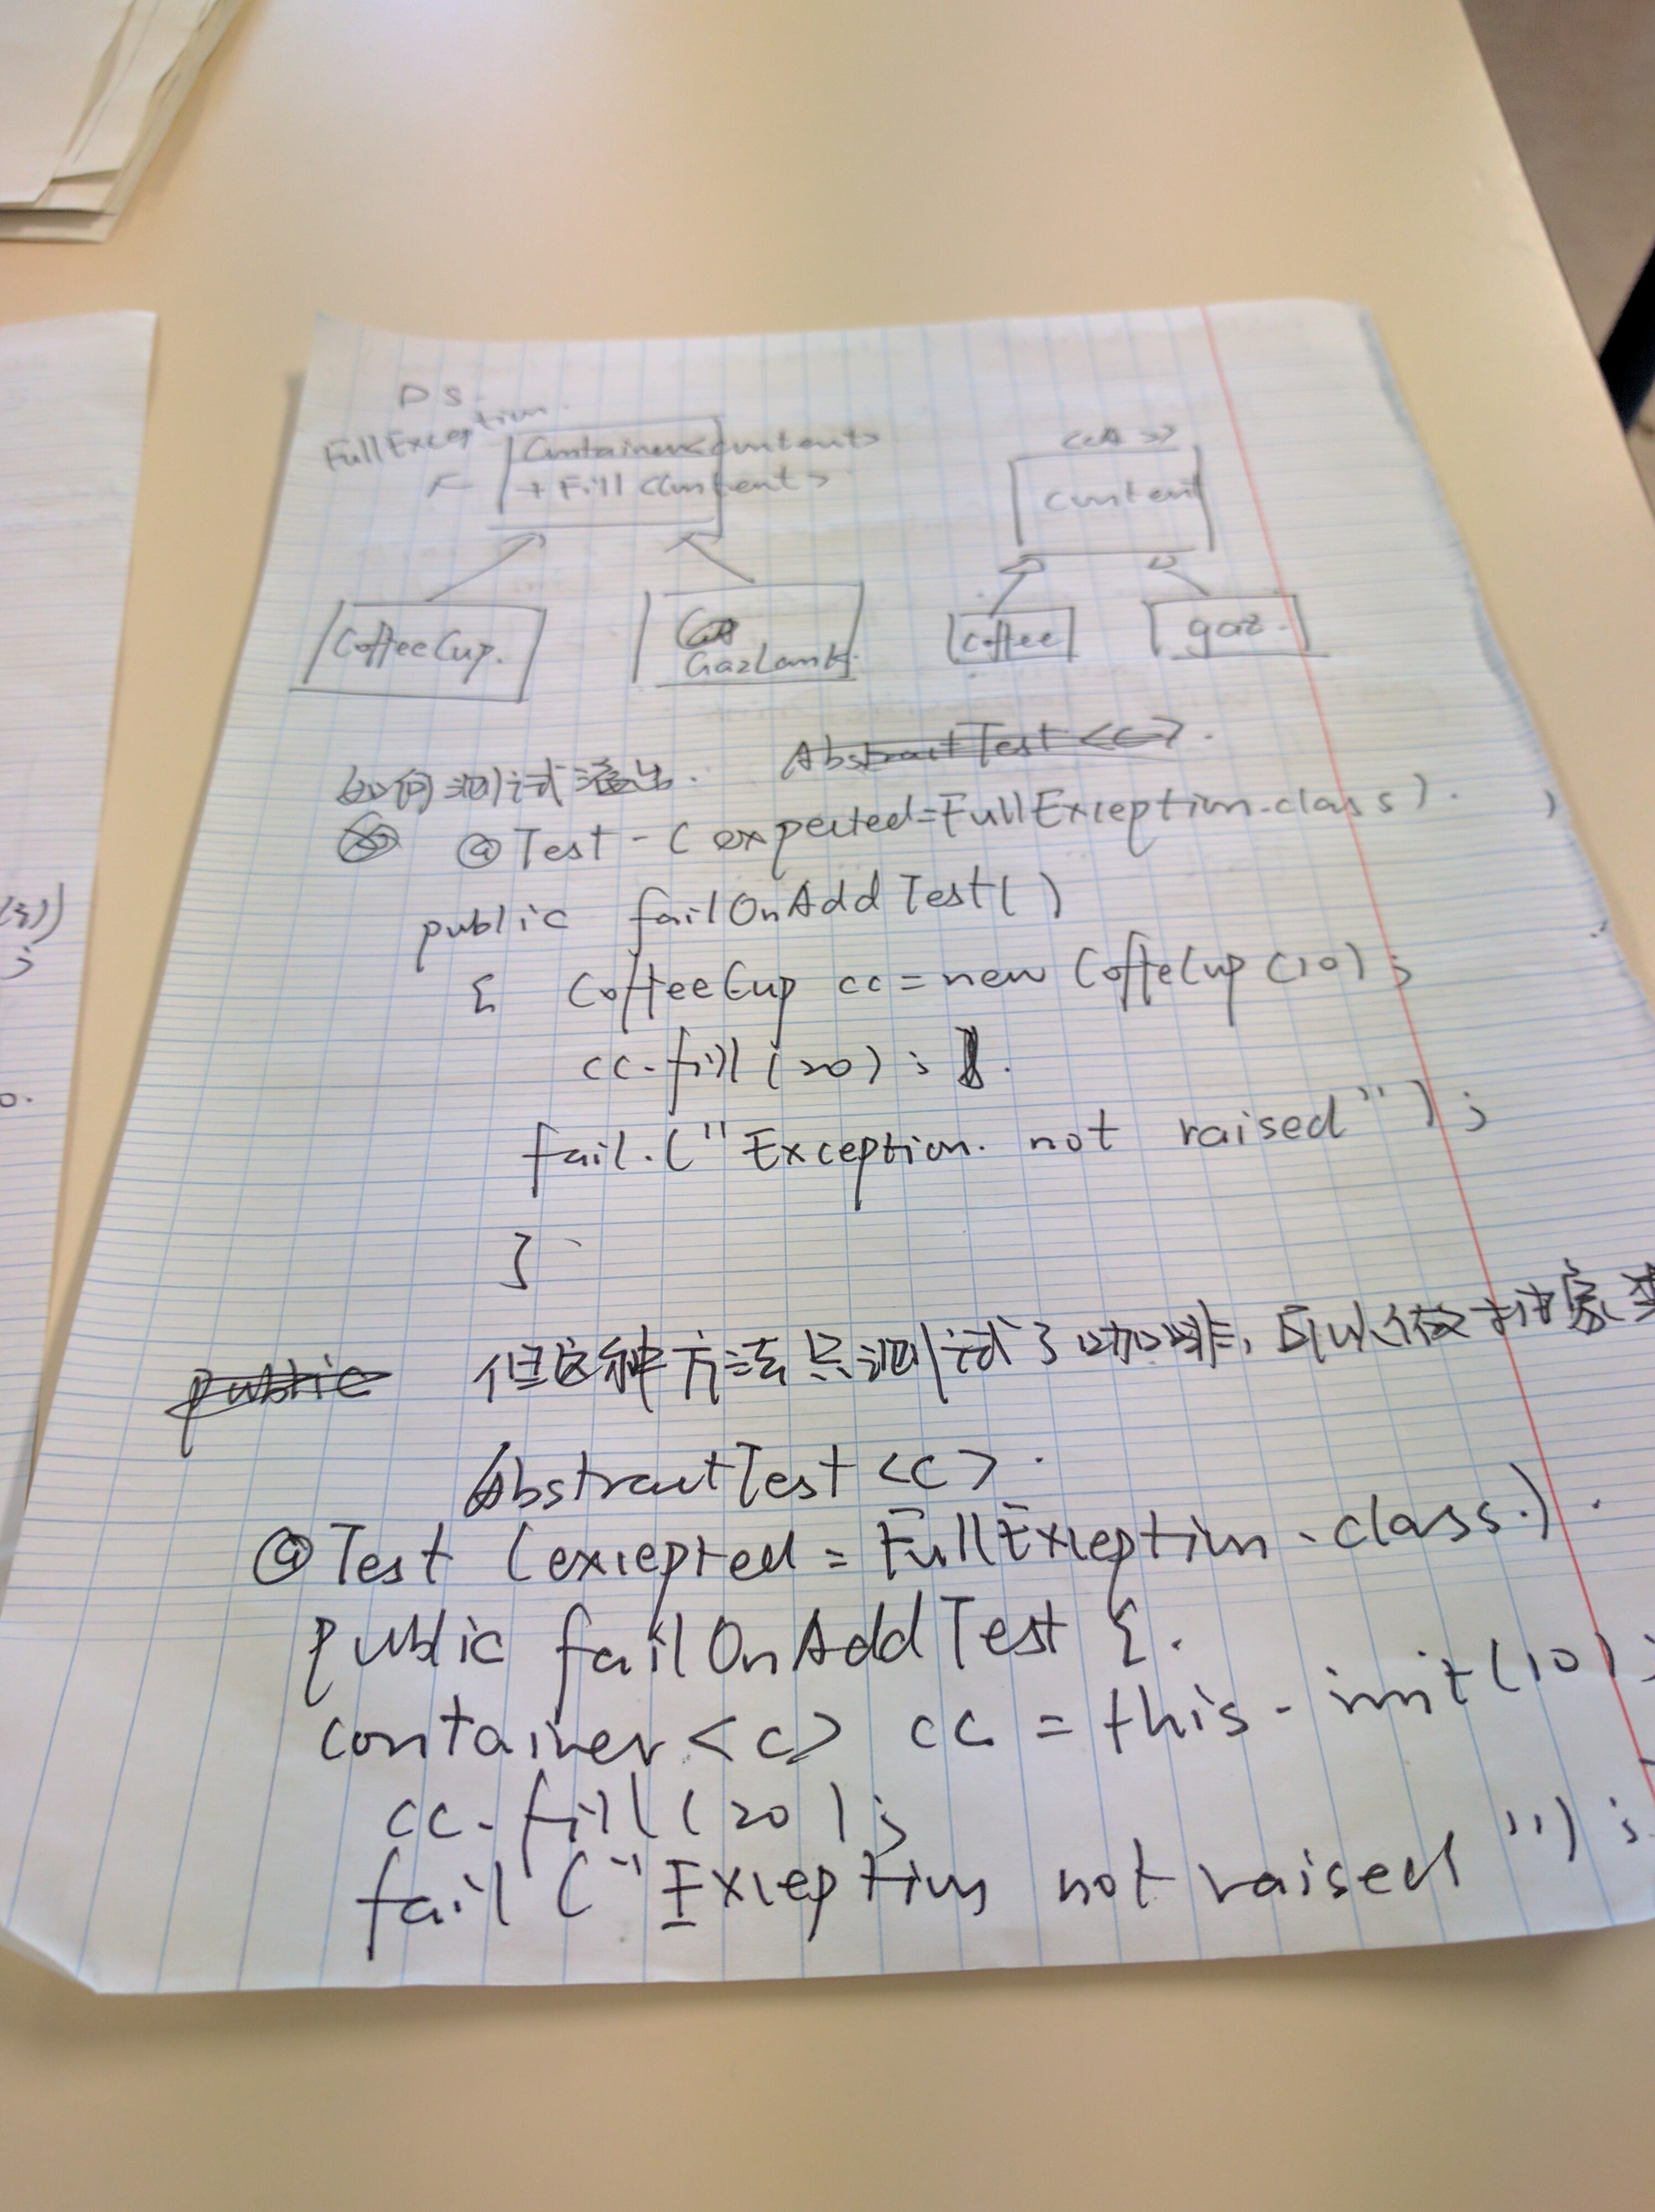 DS.
FullException.
Container<content>
+ Fill <content>
<<A>>
content
CoffeeCup.
GazTank.
coffee
gaz.
如何测试溢出.
AbstractTest <c>.
@Test-(expected=FullException.class).
public failOnAddTest()
{ CoffeeCup cc = new CoffeCup(10);
cc.fill(20);
fail.("Exception. not raised");
}
public
但这种方法只测试了咖啡, 所以做抽象类
AbstractTest <c>.
@Test (exiepted = FullException.class.).
public failOnAddTest {.
container <c> cc = this.init(10)
cc.fill(20);
fail ("Exception not raised");
(引)
;
0.